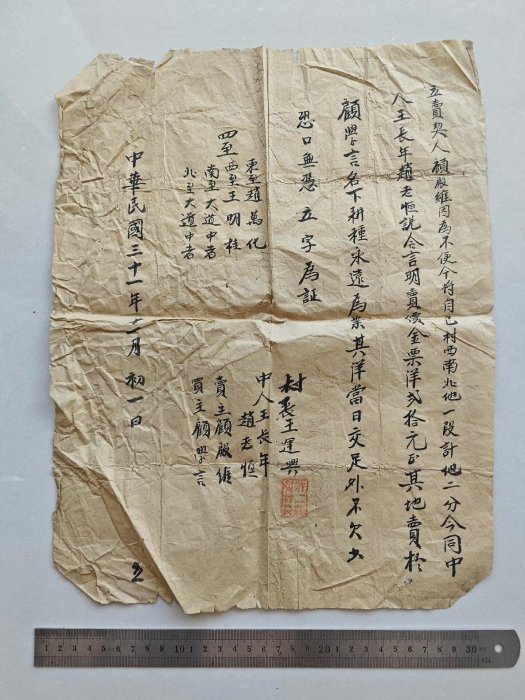 立賣契人顧殿維因為不便今將自己村西南北地一段計地二分今同中
人王長年趙老恒說合言明賣價金票洋弍拾元正其地賣於
顧學言名下耕種永遠為業其洋當日交足外不欠少
恐口無憑立字為証
四至
東至趙萬化
西至王明柱
南至大道中者
北至大道中者
村長王運興
中人王長年
趙老恒
賣主顧殿維
買主顧學言
中華民國三十一年十一月初一日
立
1 2 3 4 5 6 7 8 9 10 1 2 3 4 5 6 7 8 9 20 1 2 3 4 5 6 7 8 9 30